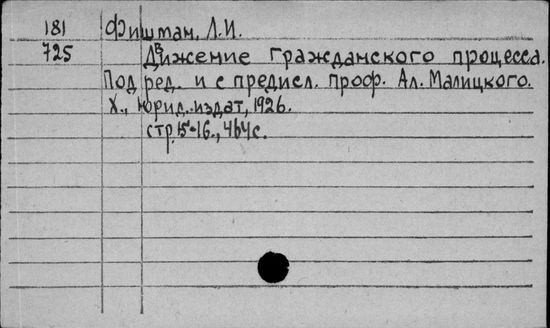 181 Фишман, Л.И.
725 Движение гражданского процесса.
Под ред. и с предисл. проф. Ал. Малицкого.
Х., Юрид. издат, 1926.
стр. 15-16., 464с.